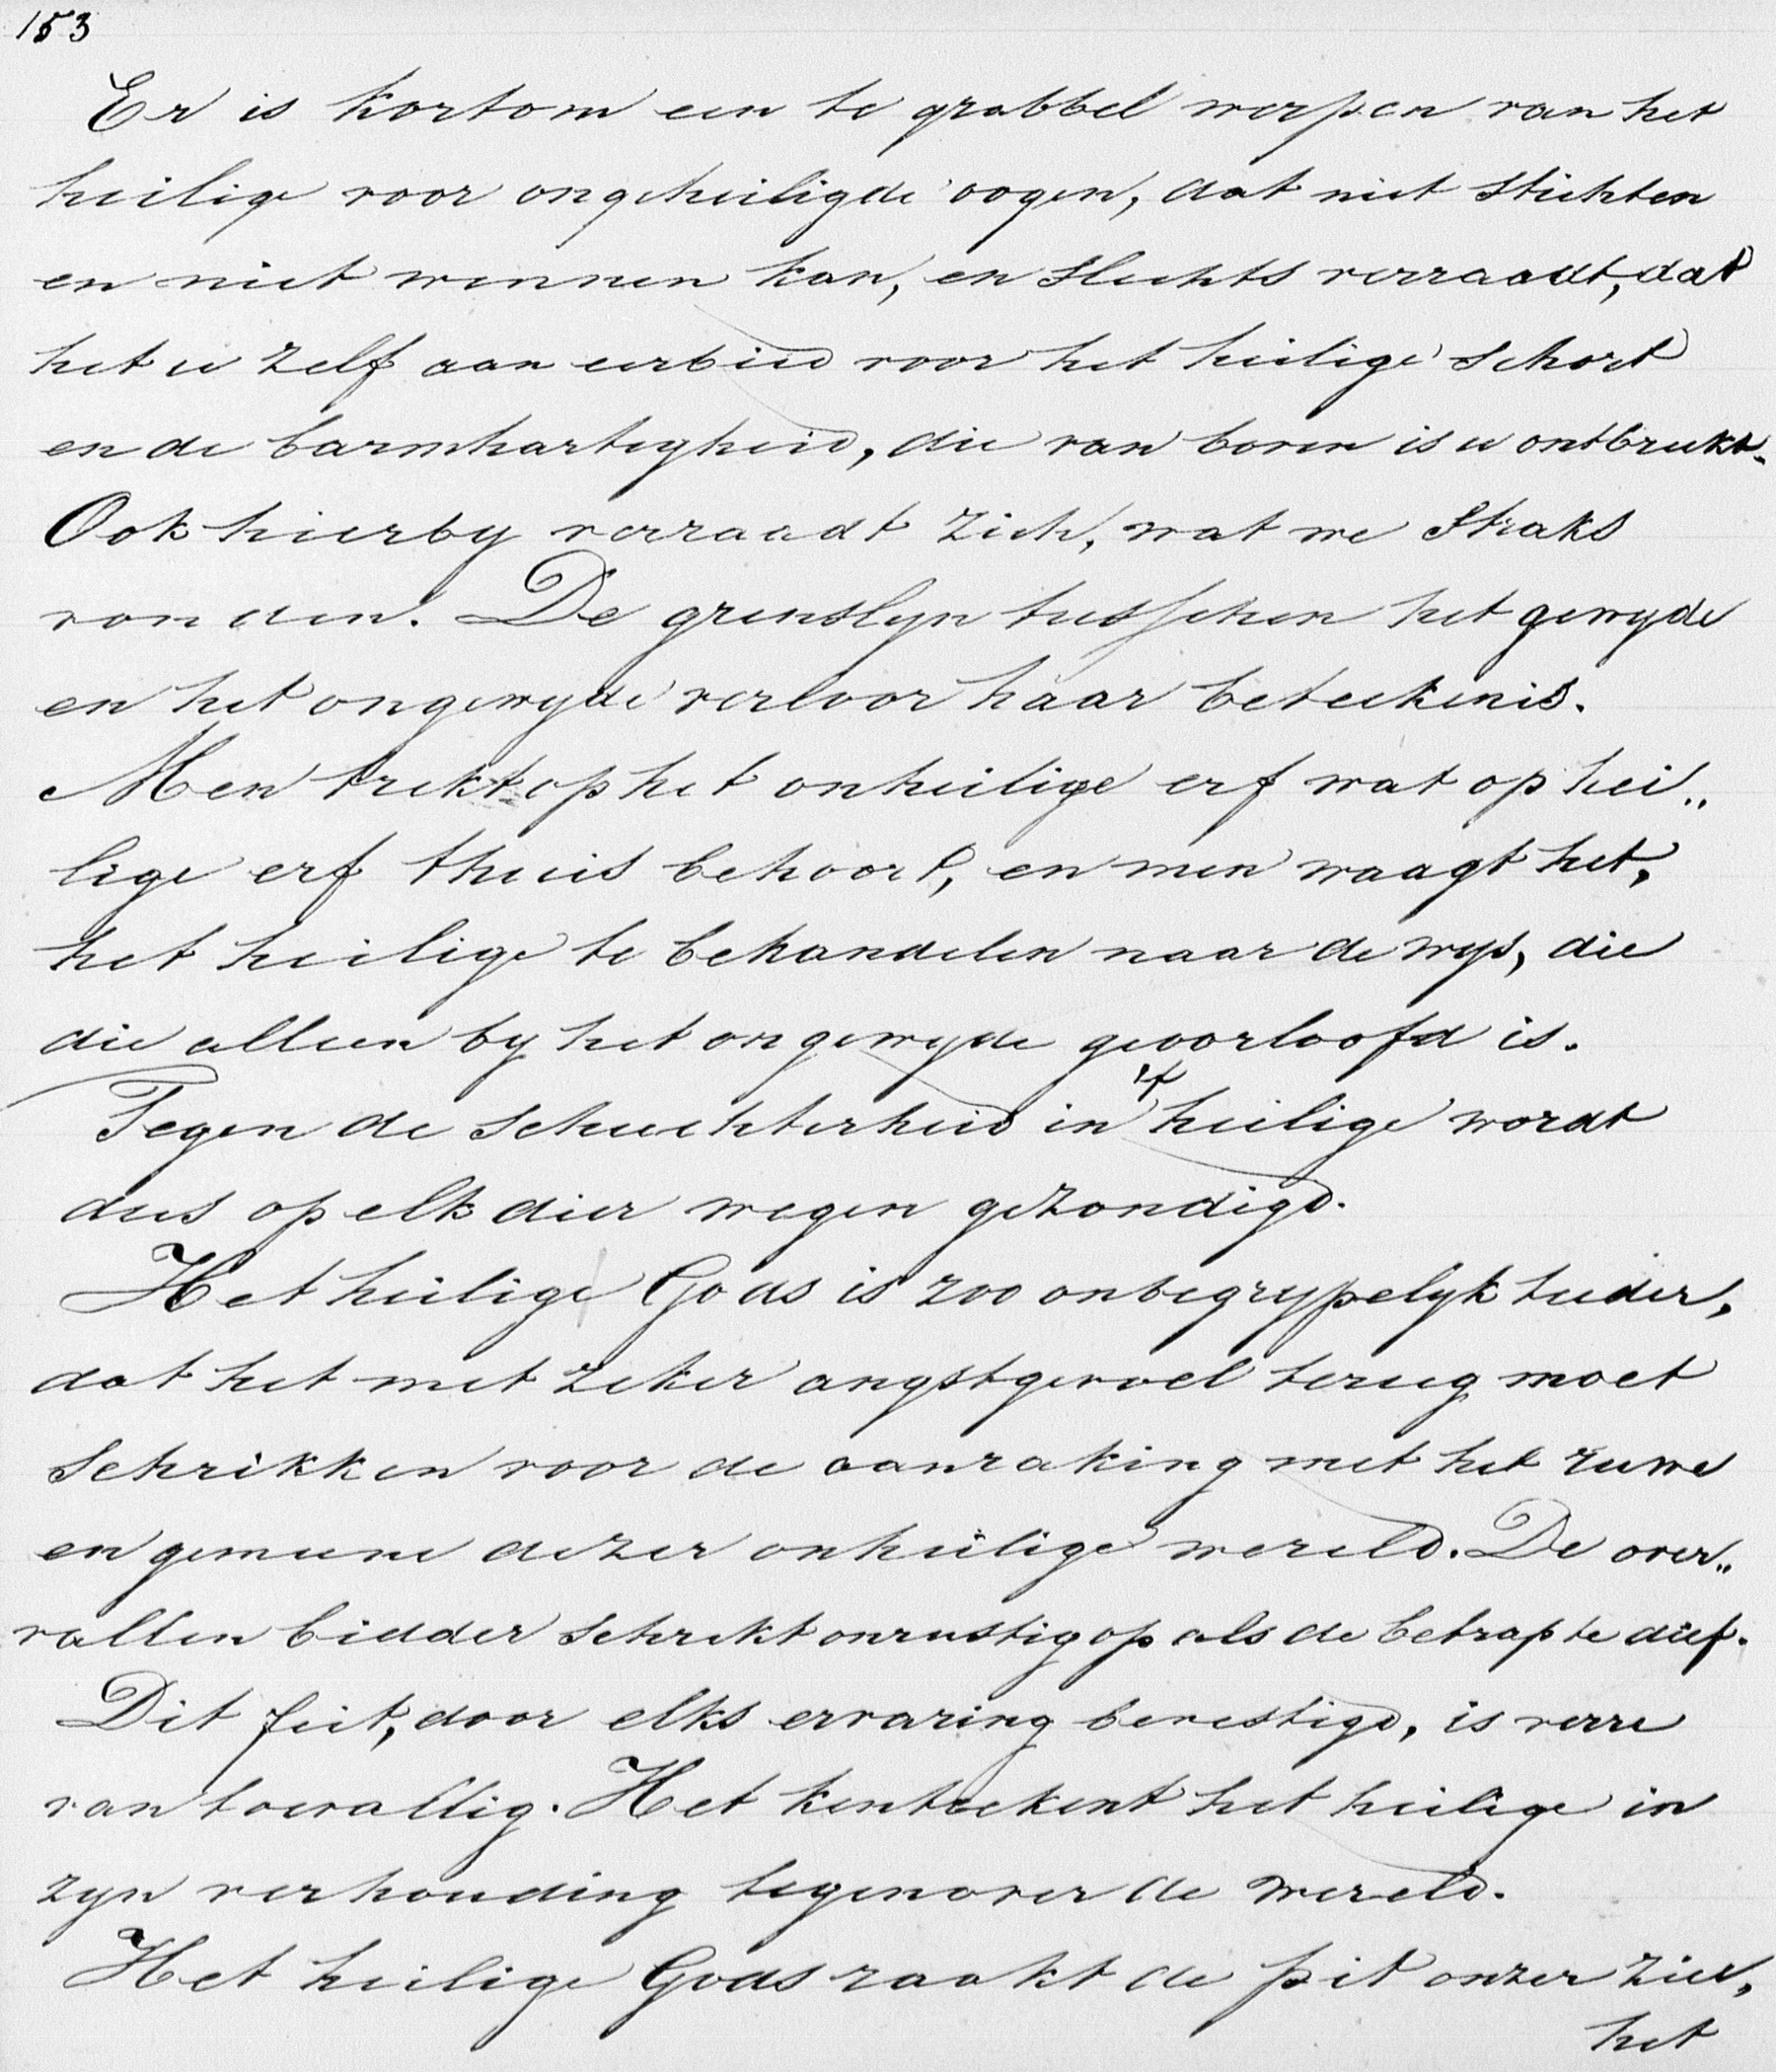 153
Er is kortom een te grabbel werpen van het
heilige voor ongeheiligde oogen, dat niet stichten
en niet winnen kan, en slechts verraadt, dat
het u zelf aan eerbied voor het heilige schort
en de barmhartigheid, die van boven is u ontbreekt.
Ook hierby verraadt zich, wat we straks
vonden. De grenslyn tusschen het gewyde
en het ongewyde verloor haar beteekenis.
Men trekt op het onheilige erf wat op hei„
lige erf thuis behoort, en men waagt het,
het heilige te behandelen naar de wys, die
die alleen by het ongewyde geoorloofd is.
Tegen de schuchterheid in 't heilige wordt
dus op elk dier wegen gezondigd.
Het heilige Gods is zoo onbegrypelyk teeder,
dat het met zeker angstgevoel terug moet
schrikken voor de aanraking met het ruwe
en gemeene dezer onheilige wereld. De over„
vallen bidder schrikt onrustig op als de betrapte dief.
Dit feit, door elks ervaring bevestigd, is verre
van toevallig. Het kenteekent het heilige in
zyn verhouding tegenover de wereld.
Het heilige Gods raakt de pit onzer ziel,
het